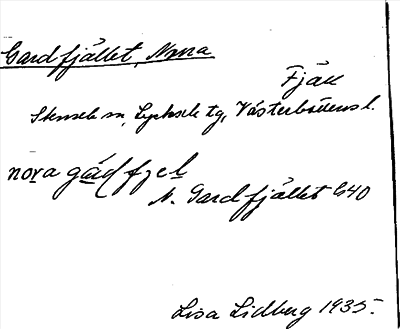 Gardfjället, Norra
Fjäll
Stensele sn, Lycksele tg, Västerbottens l.
nora gádfjel
N. Gardfjället G40
Lisa Lidberg 1935.